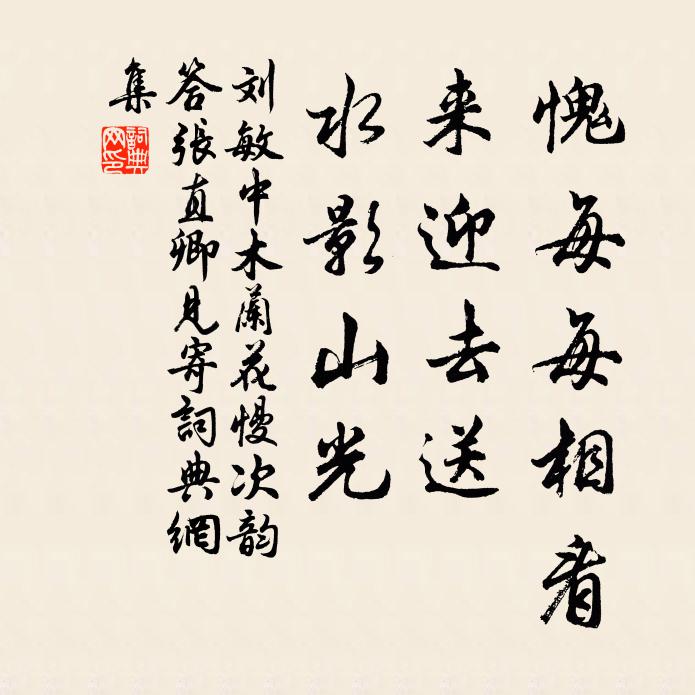 愧每每相看
来迎去送
水影山光
刘敏中木蘭花慢次韵
答張直卿見寄詞典網
集
詞典網印